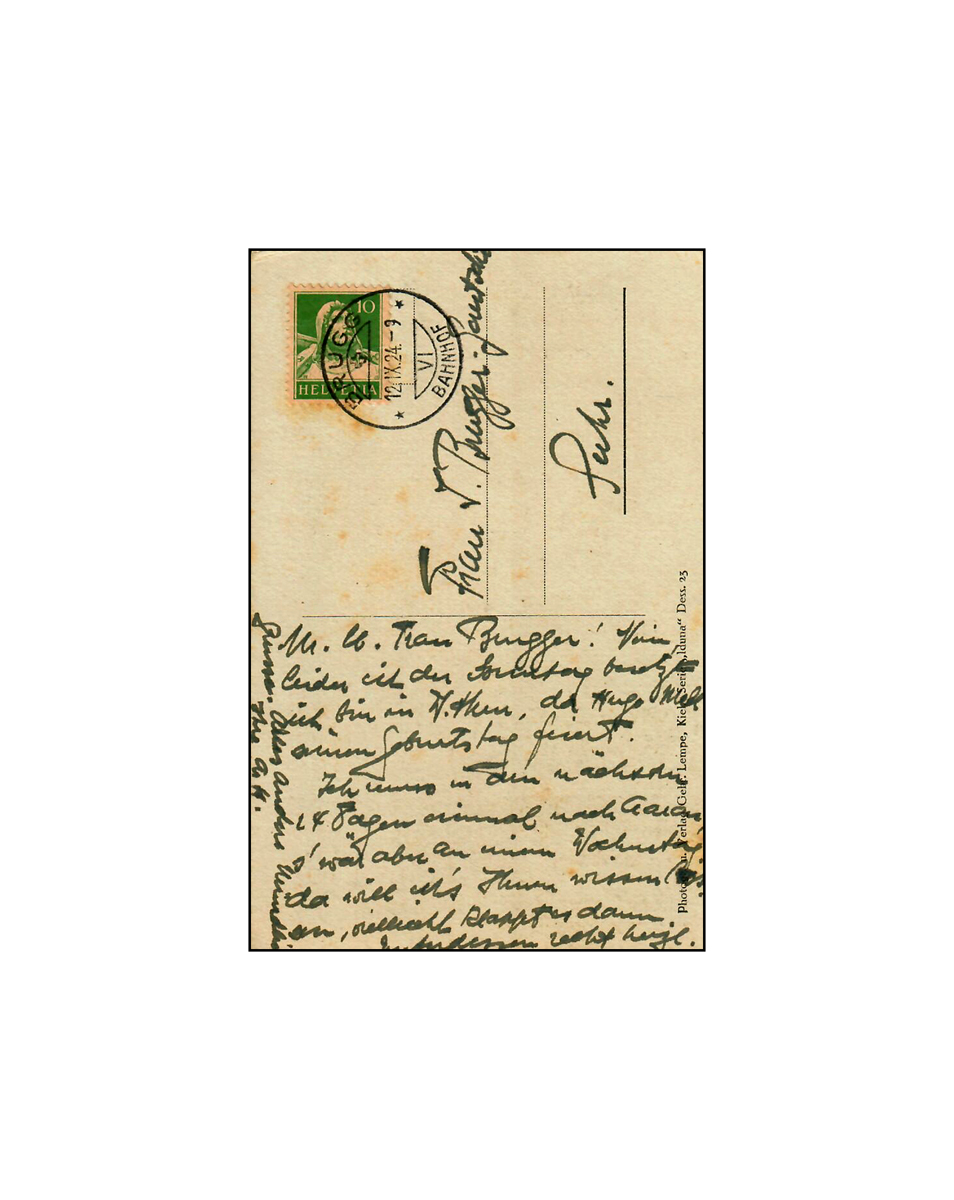 10
HELVETIA
BRUGG
12.IX.24.-9
VI
BAHNHOF
Frau V. Brugger-
Suhr.
M. lb. Frau Brugger! Nein,
leider ist der Sonntag besetzt
ich bin in W.thur, da Hugo
seinen Geburtstag feiert.
Ich muss in den nächsten
14 Tagen einmal nach Aarau
s' wär aber an einem Wochentag
da will ich's Ihnen wissen
an, vielleicht klappt es dann
Indessen recht herzl.
Grüsse. Alles andere mündl.
Ihre A. H.
Photogr. u. Verlag Gebr. Lempe, Kiel. Serie „Iduna“ Dess. 23